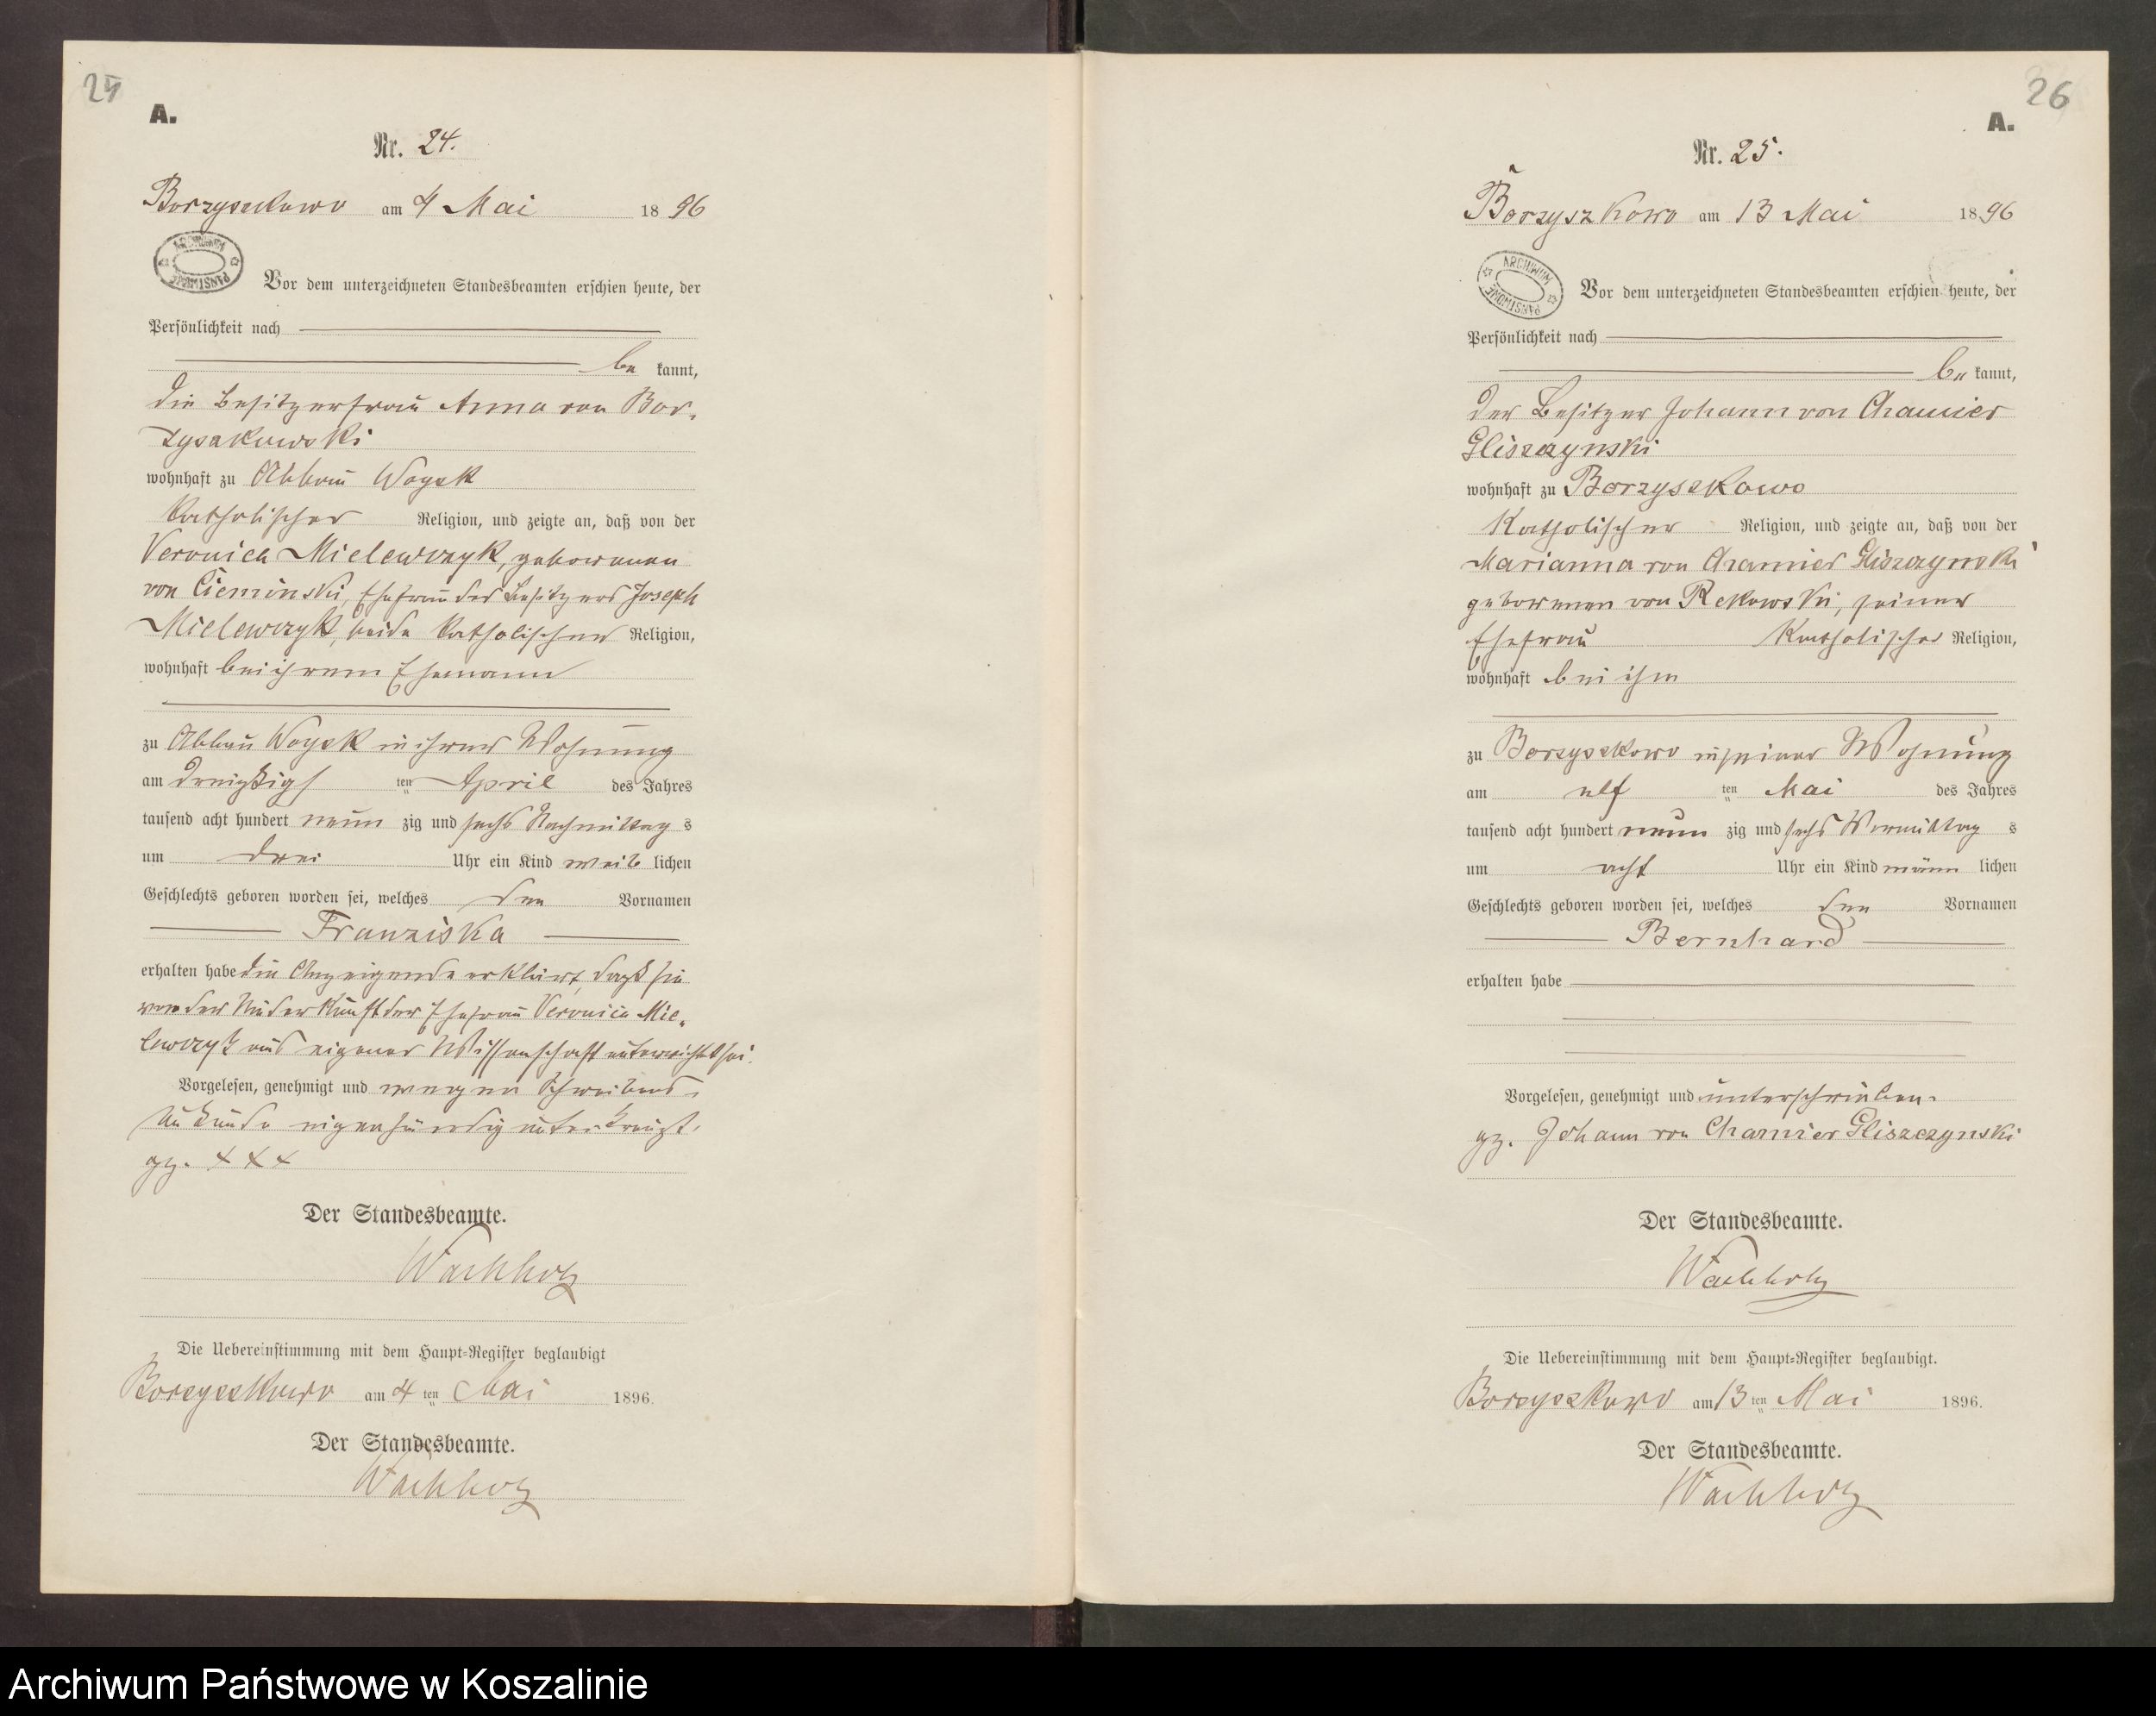 24
A.
Nr. 24.
Borzyszkowo am 4 Mai 1896
ARCHIWUM PAŃSTWOWE
Vor dem unterzeichneten Standesbeamten erschien heute, der
Persönlichkeit nach
be kannt,
die Besitzerfrau Anna von Bor-
zyszkowski
wohnhaft zu Abbau Woysk
katholischer Religion, und zeigte an, daß von der
Veronica Mielewczyk, geborenen
von Cieminski, Ehefrau des Besitzers Joseph
Mielewczyk, beide katholischer Religion,
wohnhaft bei ihrem Ehemann
zu Abbau Woysk in ihrer Wohnung
am dreißigs ten April des Jahres
tausend acht hundert neun zig und sechs Nachmittag s
um drei Uhr ein Kind weib lichen
Geschlechts geboren worden sei, welches den Vornamen
Franziska
erhalten habe die Anzeigende erklärt, daß sie
von der Niederkunft der Ehefrau Veronica Mie-
lewczyk aus eigener Wissenschaft unterrichtet sei.
Vorgelesen, genehmigt und wegen Schreibens-
unkunde eigenhändig unterkreuzt.
gz. XXX
Der Standesbeamte.
Wachholz
Die Uebereinstimmung mit dem Haupt-Register beglaubigt
Borzyszkowo am 4 ten Mai 1896.
Der Standesbeamte.
Wachholz
26
A.
Nr. 25.
Borzyszkowo am 13 Mai 1896
ARCHIWUM PAŃSTWOWE
Vor dem unterzeichneten Standesbeamten erschien heute, der
Persönlichkeit nach
be kannt,
der Besitzer Johann von Chamier
Gliszczynski
wohnhaft zu Borzyszkowo
katholischer Religion, und zeigte an, daß von der
Marianna von Chamier Gliszczynski
geborenen von Rekowski, seiner
Ehefrau katholischer Religion,
wohnhaft bei ihm
zu Borzyszkowo in seiner Wohnung
am elf ten Mai des Jahres
tausend acht hundert neun zig und sechs Vormittag s
um acht Uhr ein Kind männ lichen
Geschlechts geboren worden sei, welches den Vornamen
Bernhard
erhalten habe
Vorgelesen, genehmigt und unterschrieben.
gz. Johann von Chamier Gliszczynski
Der Standesbeamte.
Wachholz
Die Uebereinstimmung mit dem Haupt-Register beglaubigt.
Borzyszkowo am 13 ten Mai 1896.
Der Standesbeamte.
Wachholz
Archiwum Państwowe w Koszalinie